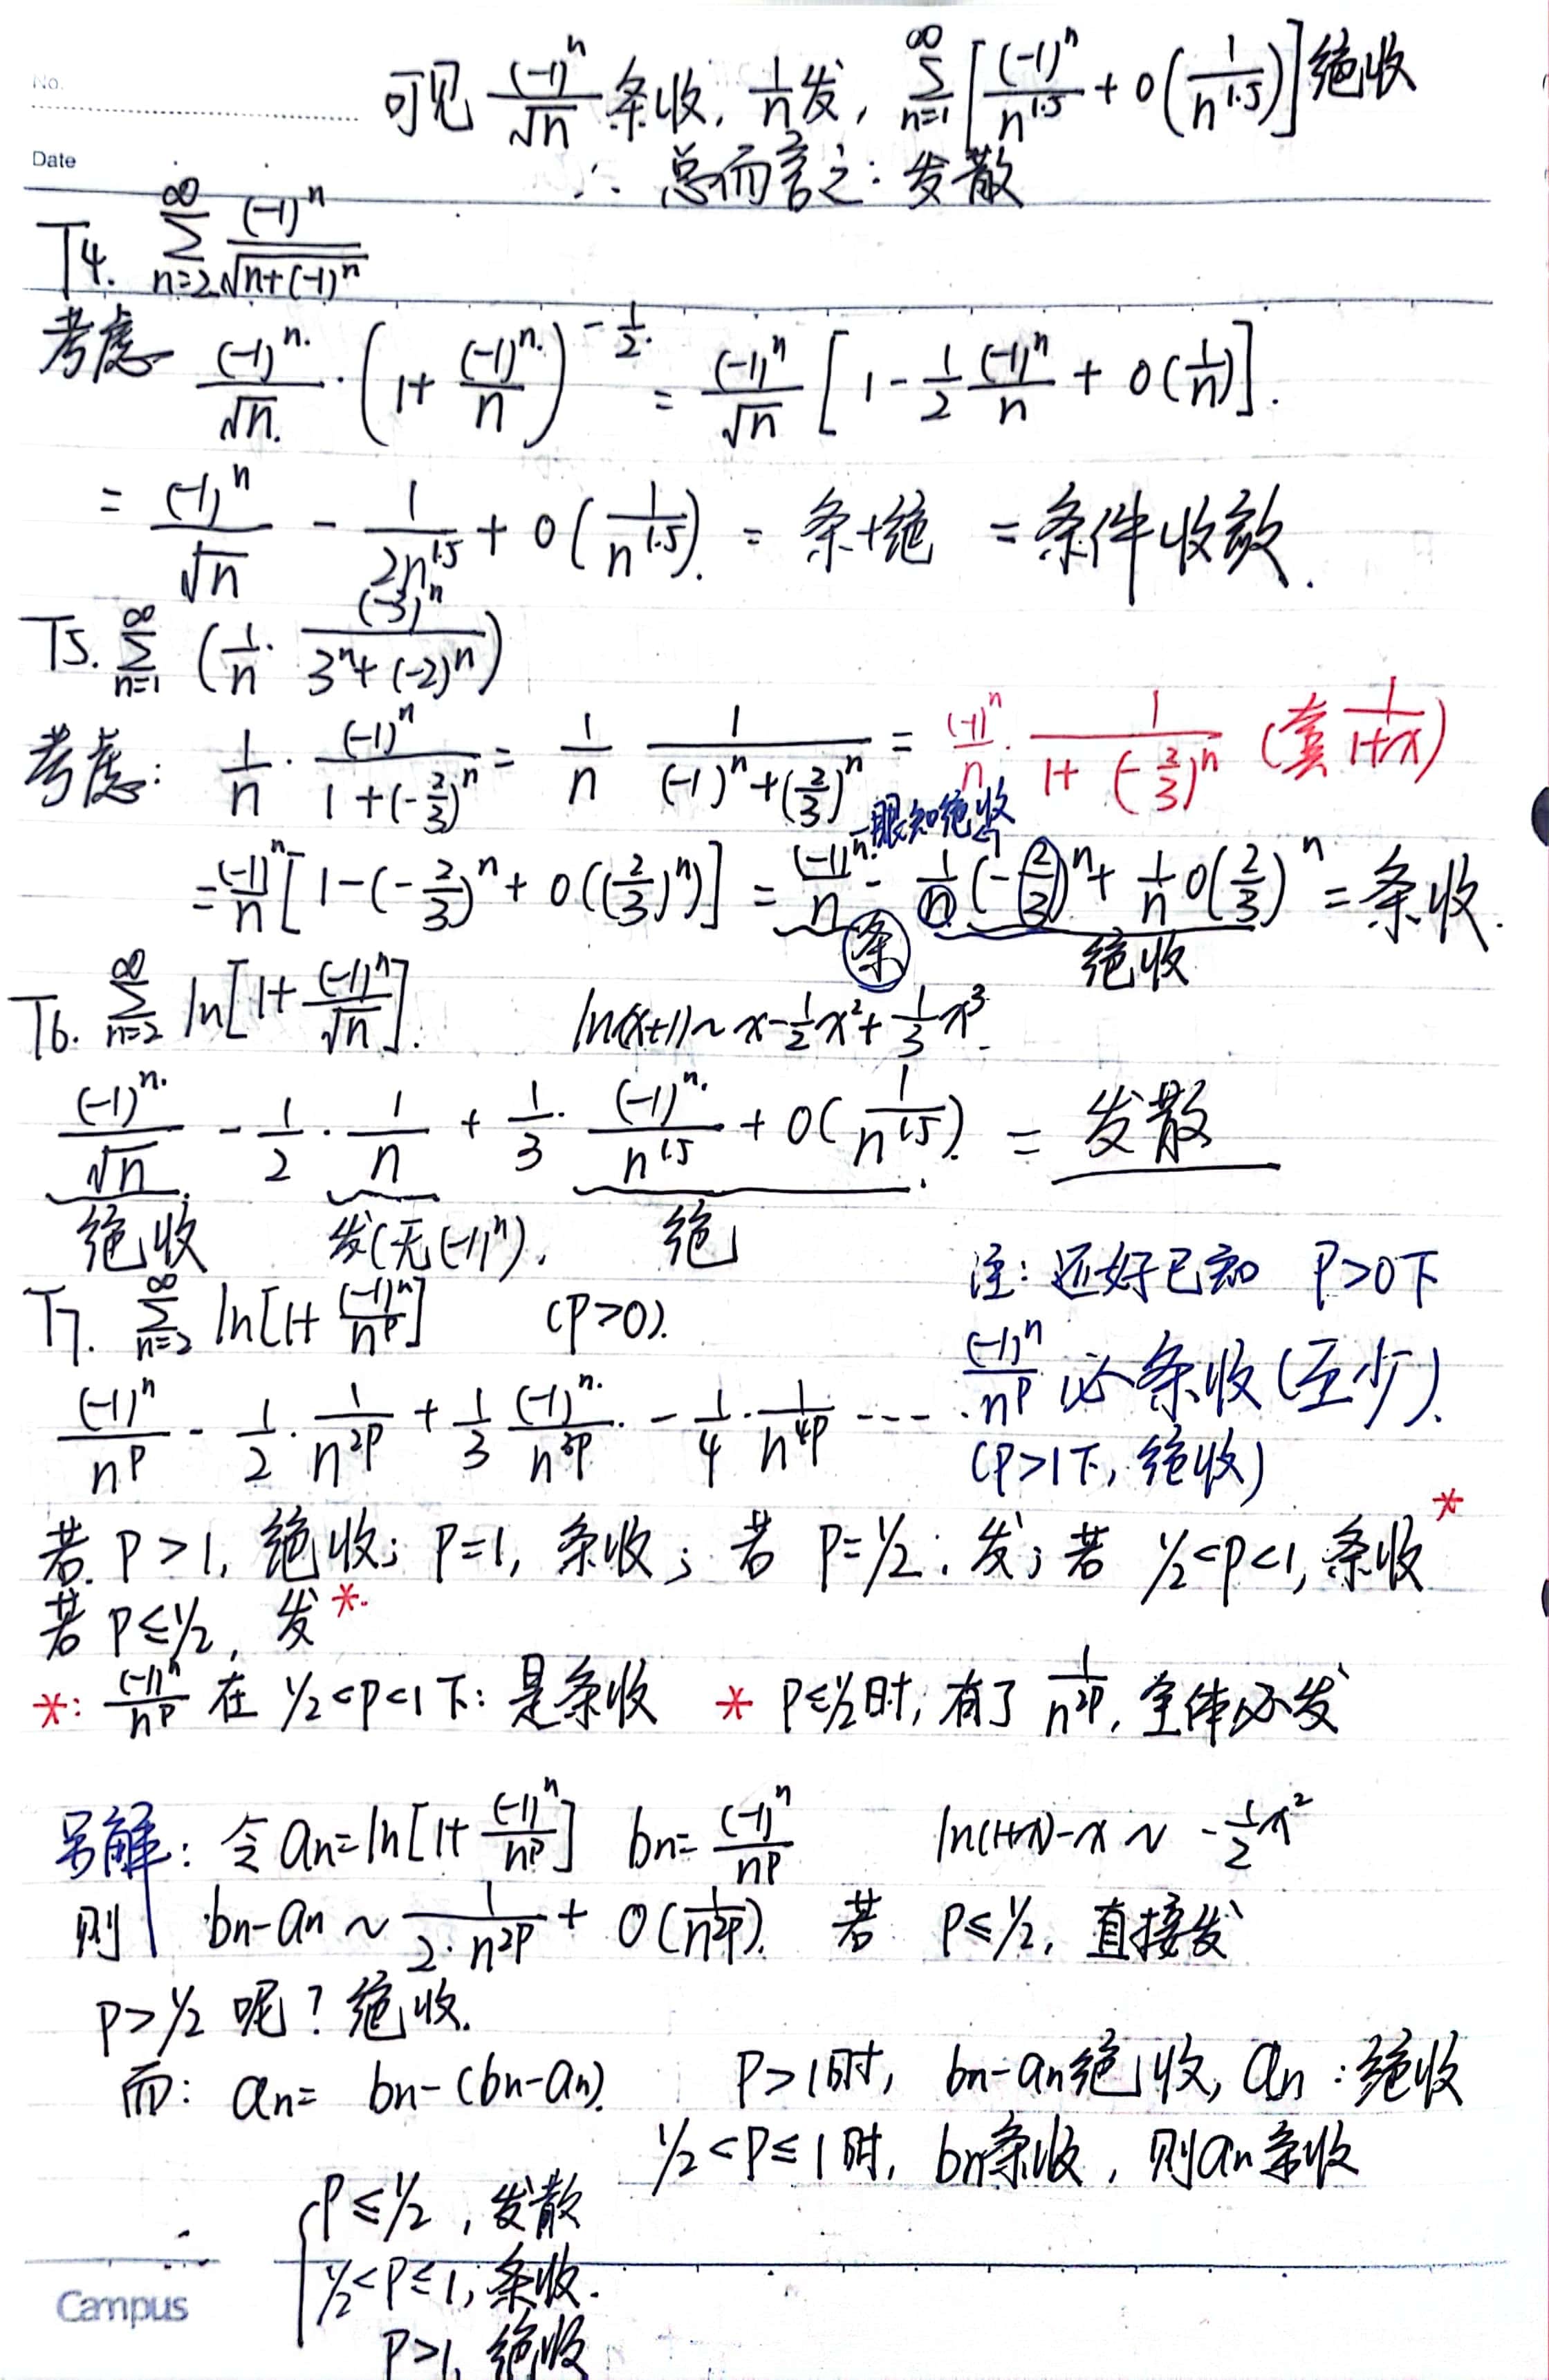 No.
可见 (-1)^n/√n 条收, 1/n 发, ∑_{n=1}^∞ [(-1)^n/n^{1.5} + o(1/n^{1.5})] 绝收
Date
∴ 总而言之: 发散
T4. ∑_{n=2}^∞ (-1)^n/√(n+(-1)^n)
考虑 (-1)^n/√n · (1 + (-1)^n/n)^{-1/2} = (-1)^n/√n [1 - 1/2 (-1)^n/n + o(1/n)].
= (-1)^n/√n - 1/(2n^{1.5}) + o(1/n^{1.5}) = 条+绝 = 条件收敛.
T5. ∑_{n=1}^∞ (1/n · (-3)^n/(3^n+(-2)^n))
考虑: 1/n · (-1)^n/(1+(-2/3)^n) = 1/n 1/((-1)^n+(2/3)^n) = (-1)^n/n · 1/(1+(-2/3)^n) (套 1/(1+x))
一眼知绝收
= (-1)^n/n [1-(-2/3)^n + o((2/3)^n)] = (-1)^n/n - 1/n (-2/3)^n + 1/n o(2/3)^n = 条收.
条 绝收
T6. ∑_{n=2}^∞ ln[1+ (-1)^n/√n]. ln(x+1)~x-1/2x²+1/3x³.
(-1)^n/√n - 1/2 · 1/n + 1/3 · (-1)^n/n^{1.5} + o(1/n^{1.5}). = 发散
绝收 发(无(-1)^n). 绝
注: 还好已知 P>0下
T7. ∑_{n=2}^∞ ln[1+ (-1)^n/n^p] (P>0).
(-1)^n/n^p 必条收(至少).
(-1)^n/n^p - 1/2 · 1/n^{2p} + 1/3 (-1)^n/n^{3p} - 1/4 · 1/n^{4p} ----
(P>1下, 绝收)
若 P>1, 绝收; P=1, 条收; 若 P=1/2: 发; 若 1/2<p<1, 条收*
若 P≤1/2, 发*.
*: (-1)^n/n^p 在 1/2<p<1下: 是条收 * P≤1/2时, 有了 1/n^{2p}, 全体必发
另解: 令 an=ln[1+ (-1)^n/n^p] bn= (-1)^n/n^p ln(1+x)-x ~ -1/2x²
则 bn-an ~ 1/(2·n^{2p}) + o(1/n^{2p}). 若 P≤1/2, 直接发
P>1/2 呢? 绝收.
而: an= bn-(bn-an). P>1时, bn-an绝收, an: 绝收
1/2<P≤1时, bn条收, 则an条收
∴ { P≤1/2, 发散
1/2<P≤1, 条收.
P>1, 绝收
Campus